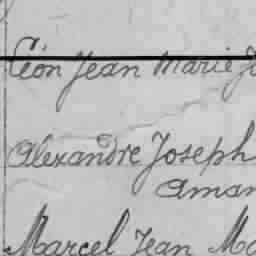 Léon Jean Marie
Alexandre Joseph
Aman
Marcel Jean Ma